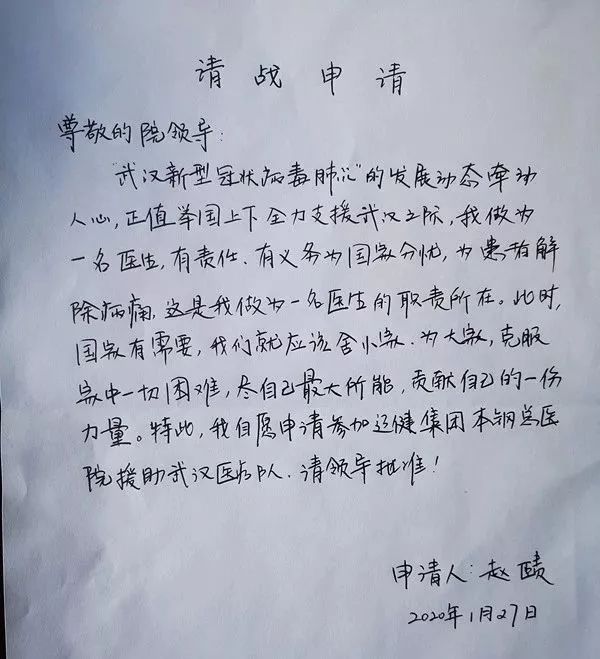 请战申请
尊敬的院领导:
"武汉新型冠状病毒肺炎"的发展动态牵动
人心,正值举国上下全力支援武汉之际,我做为
一名医生,有责任、有义务为国家分忧,为患者解
除病痛,这是我做为一名医生的职责所在。此时,
国家有需要,我们就应该舍小家、为大家,克服
家中一切困难,尽自己最大所能,贡献自己的一份
力量。特此,我自愿申请参加辽健集团本钢总医
院援助武汉医疗队、请领导批准!
申请人:赵赜
2020年1月27日